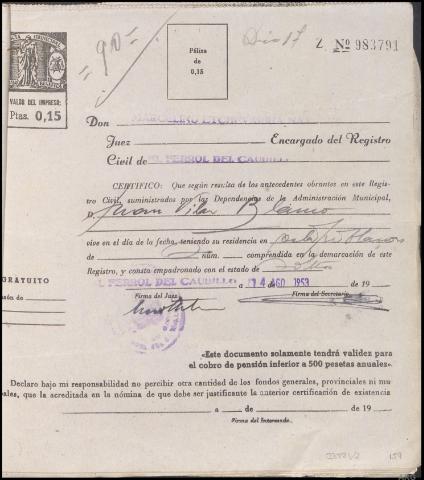 = 90 =
Póliza
de
0,15
Dio 17
Z Nº 983791
VALOR DEL IMPRESO:
Ptas. 0,15
Don MARCELINO
Juez Encargado del Registro
Civil de EL FERROL DEL CAUDILLO
CERTIFICO: Que según resulta de los antecedentes obrantes en este Regis-
tro Civil, suministrados por las Dependencias de la Administración Municipal,
D. Juan Vilar Blanco
vive en el día de la fecha, teniendo su residencia en
de núm. comprendida en la demarcación de este
Registro, y consta empadronado con el estado de
GRATUITO
EL FERROL DEL CAUDILLO a 14 AGO 1953 de 19
Firma del Juez Firma del Secretario
«Este documento solamente tendrá validez para
el cobro de pensión inferior a 500 pesetas anuales».
Declaro bajo mi responsabilidad no percibir otra cantidad de los fondos generales, provinciales ni mu
pales, que la acreditada en la nómina de que debe ser justificante la anterior certificación de existencia
a de de 19
Firma del Interesado.
159